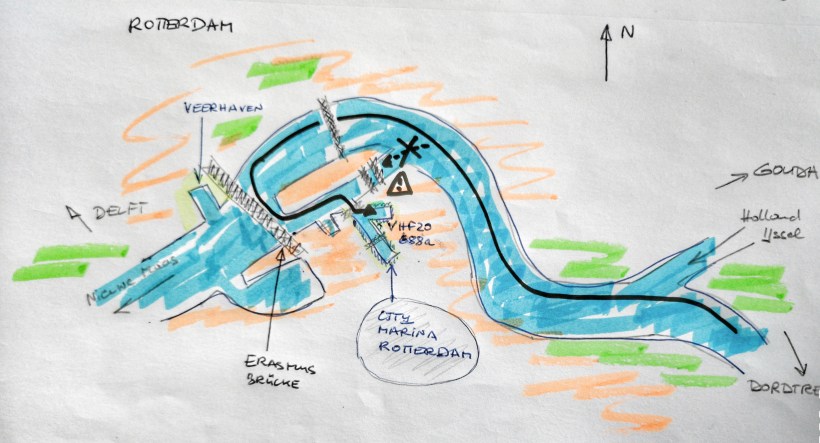 ROTTERDAM
N
VEERHAVEN
GOUDA
DELFT
Holland
Ijssel
VHF20
Nieuwe Maas
CITY
MARINA
ROTTERDAM
ERASMUS
BRÜCKE
DORDTRE